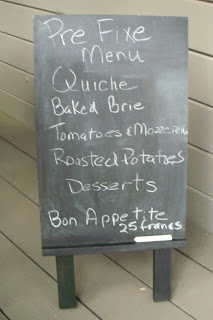 Pre Fixe
Menu
Quiche
Baked Brie
Tomatoes & Mozzerella
Roasted Potatoes
Desserts
Bon Appetite
25 francs